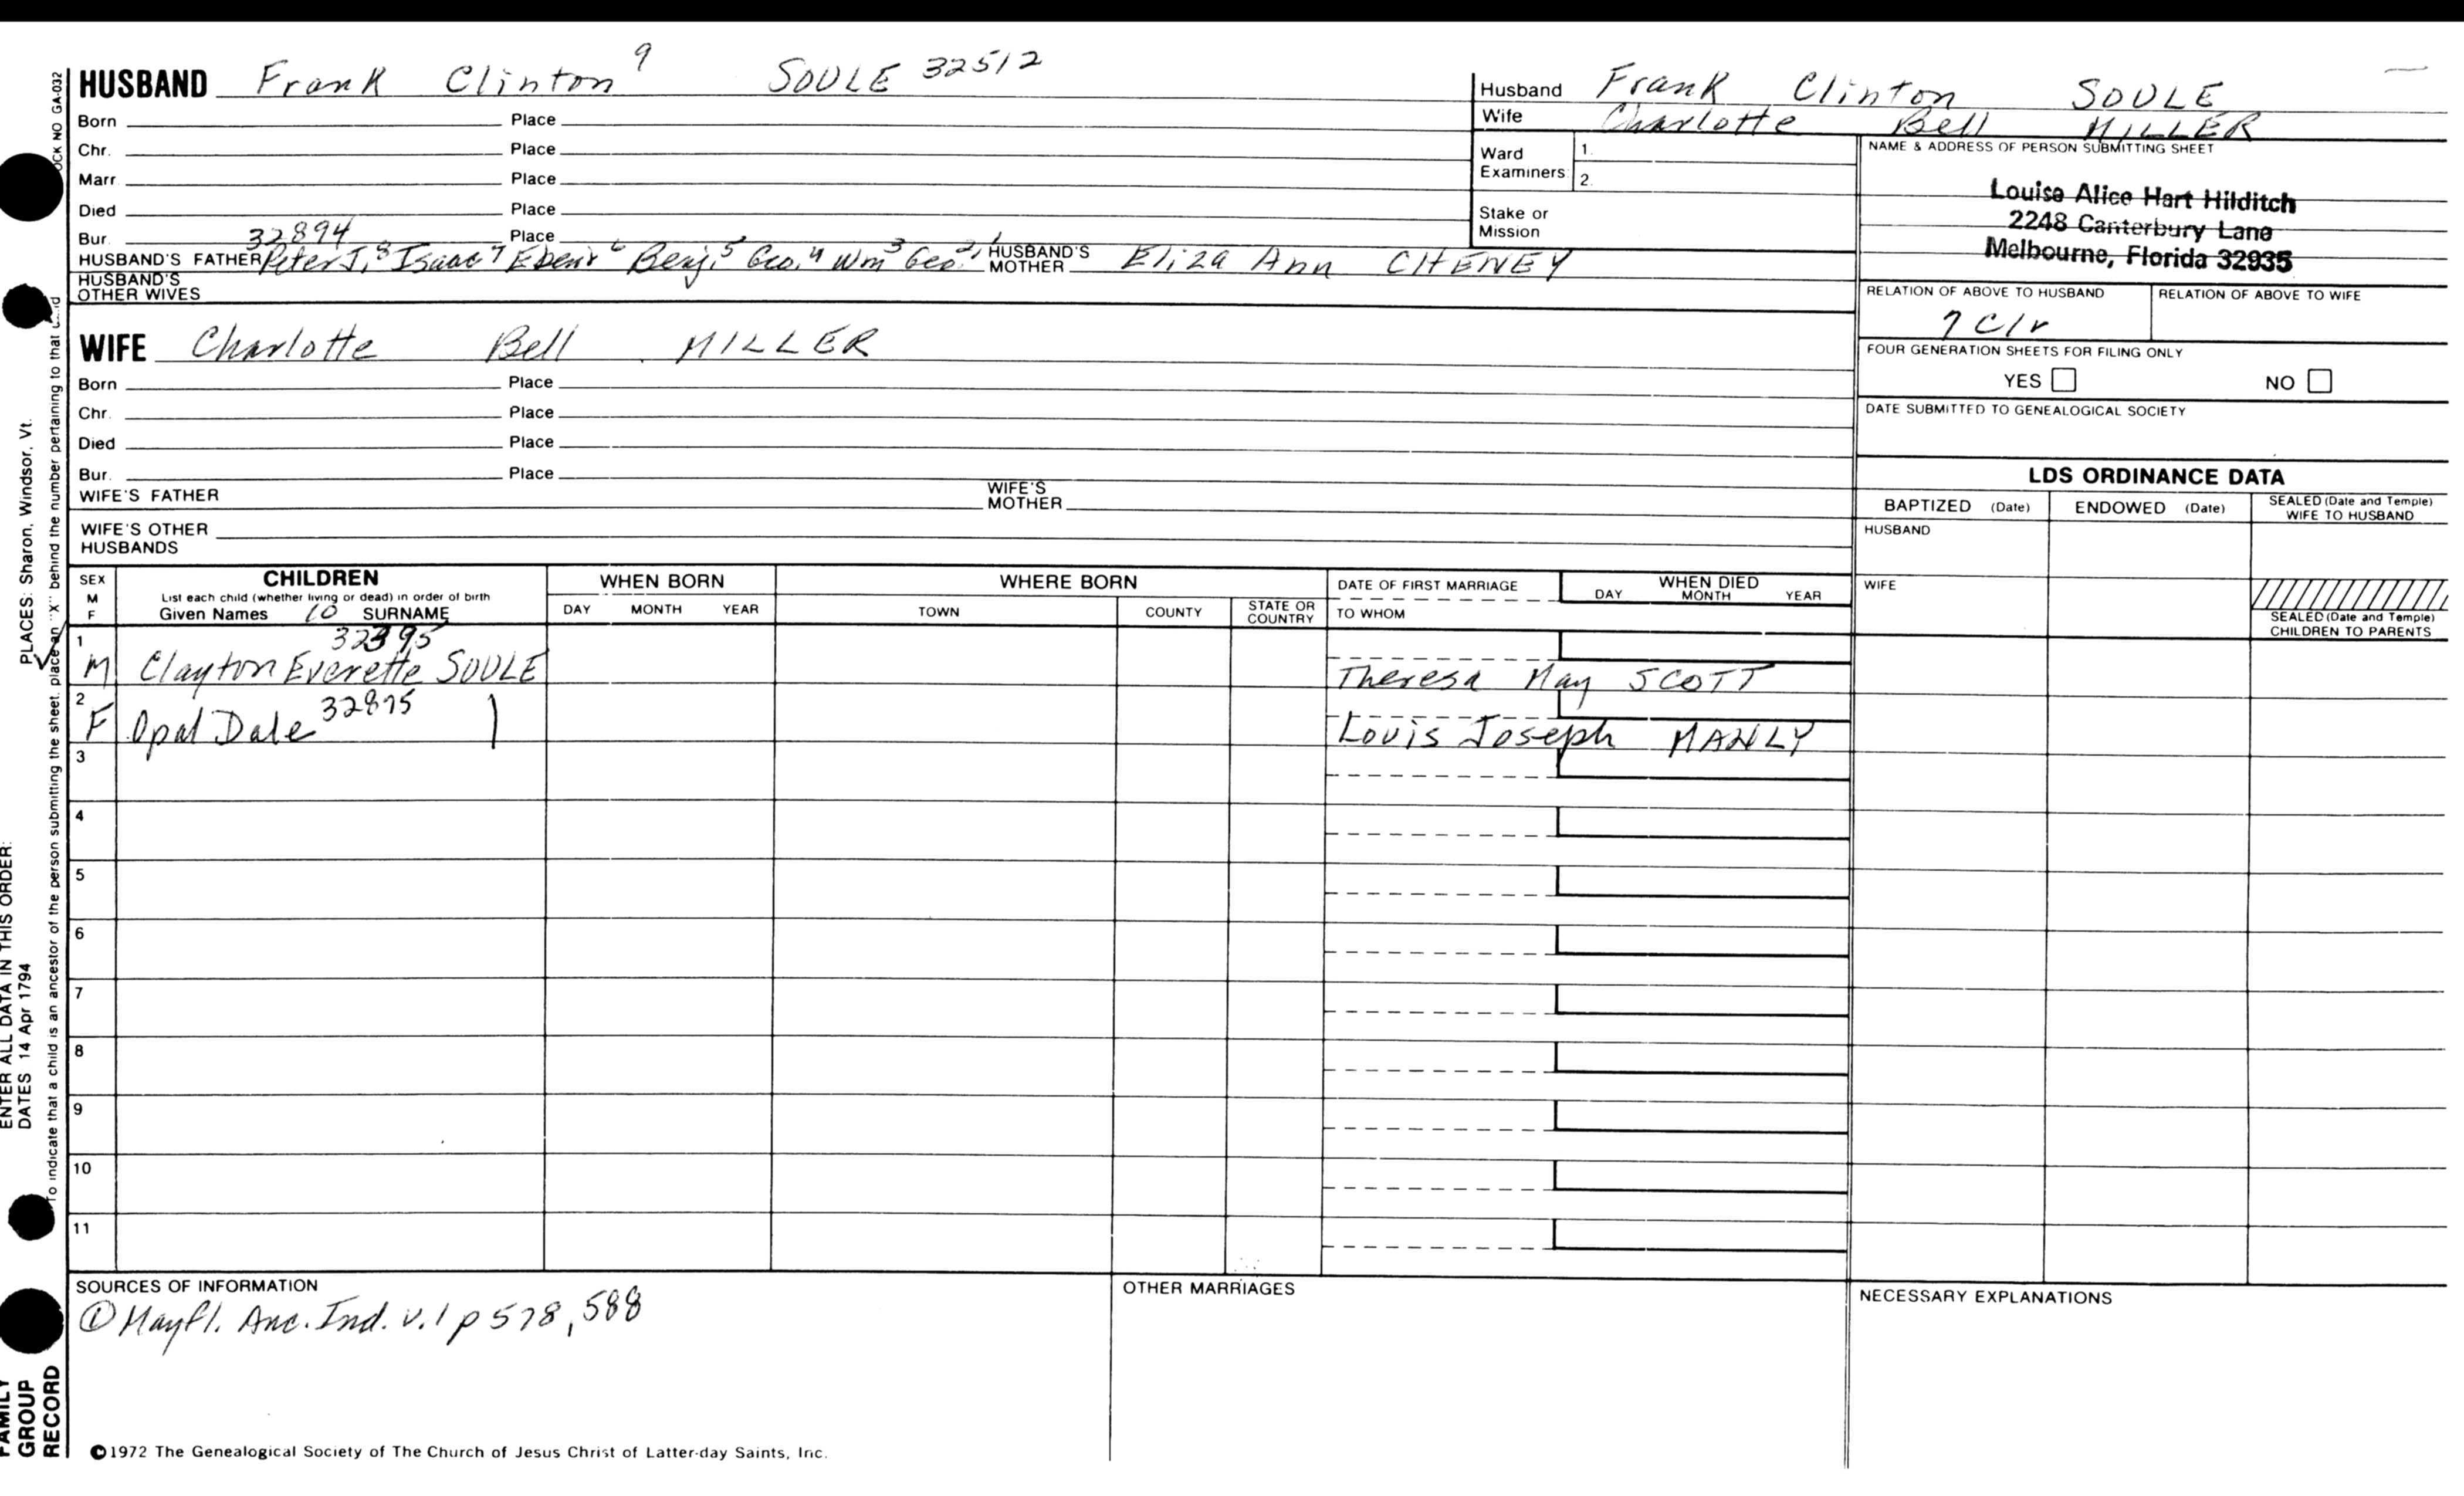 HUSBAND Frank Clinton 9 SOULE 32512
Born Place
Chr. Place
Marr. Place
Died Place
Bur. Place
32894
HUSBAND'S FATHER Peter J,8 Isaac7 Ebenr6 Benj.5 Geo.4 Wm3 Geo.2,1 HUSBAND'S MOTHER Eliza Ann CHENEY
HUSBAND'S OTHER WIVES
WIFE Charlotte Bell MILLER
Born Place
Chr. Place
Died Place
Bur. Place
WIFE'S FATHER WIFE'S MOTHER
WIFE'S OTHER HUSBANDS
Husband Frank Clinton SOULE
Wife Charlotte Bell MILLER
Ward Examiners 1. 2.
Stake or Mission
NAME & ADDRESS OF PERSON SUBMITTING SHEET
Louise Alice Hart Hilditch
2248 Canterbury Lane
Melbourne, Florida 32935
RELATION OF ABOVE TO HUSBAND RELATION OF ABOVE TO WIFE
7 C/r
FOUR GENERATION SHEETS FOR FILING ONLY
YES NO
DATE SUBMITTED TO GENEALOGICAL SOCIETY
LDS ORDINANCE DATA
BAPTIZED (Date) ENDOWED (Date) SEALED (Date and Temple) WIFE TO HUSBAND
HUSBAND
WIFE
SEALED (Date and Temple) CHILDREN TO PARENTS
SEX M F
CHILDREN
List each child (whether living or dead) in order of birth
Given Names 10 SURNAME
WHEN BORN
DAY MONTH YEAR
WHERE BORN
TOWN COUNTY STATE OR COUNTRY
DATE OF FIRST MARRIAGE
TO WHOM
WHEN DIED
DAY MONTH YEAR
1 32395
M Clayton Everette SOULE Theresa May SCOTT
2 32895
F Opal Dale Louis Joseph MANLY
3
4
5
6
7
8
9
10
11
SOURCES OF INFORMATION
① Mayfl. Anc. Ind. v.1 p 578, 588
OTHER MARRIAGES
NECESSARY EXPLANATIONS
©1972 The Genealogical Society of The Church of Jesus Christ of Latter-day Saints, Inc.
OCK NO GA-032
To indicate that a child is an ancestor of the person submitting the sheet, place an "X" behind the number pertaining to that
PLACES: Sharon, Windsor, Vt.
ENTER ALL DATA IN THIS ORDER:
DATES 14 Apr 1794
FAMILY
GROUP
RECORD